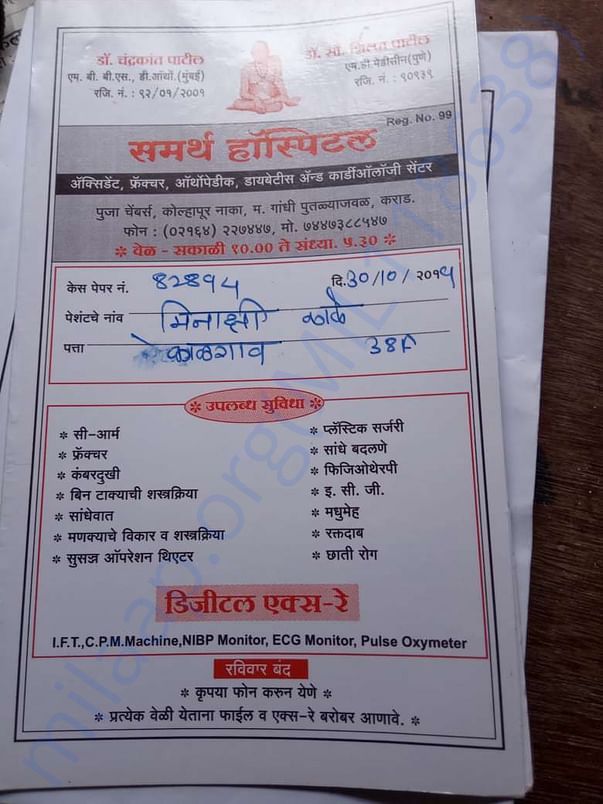 डॉ. चंद्रकांत पाटील
एम. बी. बी.एस., डी.ऑर्थो. (मुंबई)
रजि. नं. : ९२/०१/२००१
डॉ. सौ. शिल्पा पाटील
एम.डी.मेडीसीन(पुणे)
रजि. नं. : ९०९३९
Reg. No. 99
समर्थ हॉस्पिटल
ॲक्सिडेंट, फ्रॅक्चर, ऑर्थोपेडीक, डायबेटीस ॲन्ड कार्डीऑलॉजी सेंटर
पुजा चेंबर्स, कोल्हापूर नाका, म. गांधी पुतळ्याजवळ, कराड.
फोन : (०२१६४) २२७४४७, मो. ७४४७३८८५४७
* वेळ - सकाळी १०.०० ते संध्या. ५.३० *
केस पेपर नं. 82894 दि. 30/10/२०१५
पेशंटचे नांव मिनाक्षी
पत्ता काळगाव 38F
* उपलब्ध सुविधा *
* सी-आर्म
* फ्रॅक्चर
* कंबरदुखी
* बिन टाक्याची शस्त्रक्रिया
* सांधेवात
* मणक्याचे विकार व शस्त्रक्रिया
* सुसज्ज ऑपरेशन थिएटर
* प्लॅस्टिक सर्जरी
* सांधे बदलणे
* फिजिओथेरपी
* इ. सी. जी.
* मधुमेह
* रक्तदाब
* छाती रोग
डिजीटल एक्स-रे
I.F.T.,C.P.M.Machine,NIBP Monitor, ECG Monitor, Pulse Oxymeter
रविवार बंद
* कृपया फोन करुन येणे *
* प्रत्येक वेळी येताना फाईल व एक्स-रे बरोबर आणावे. *